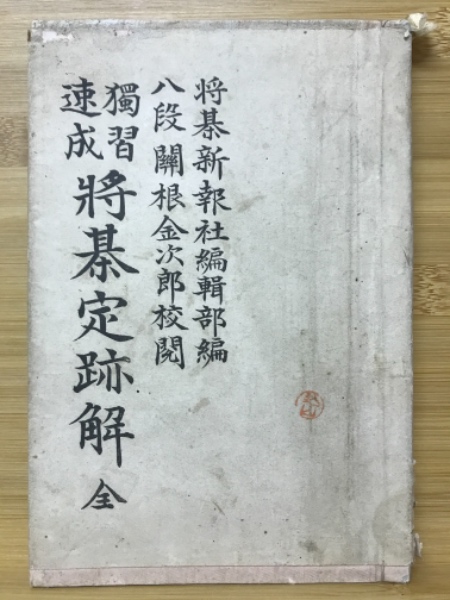 将棊新報社編輯部編
八段 關根金次郎校閲
獨習
速成
將棊定跡解 全